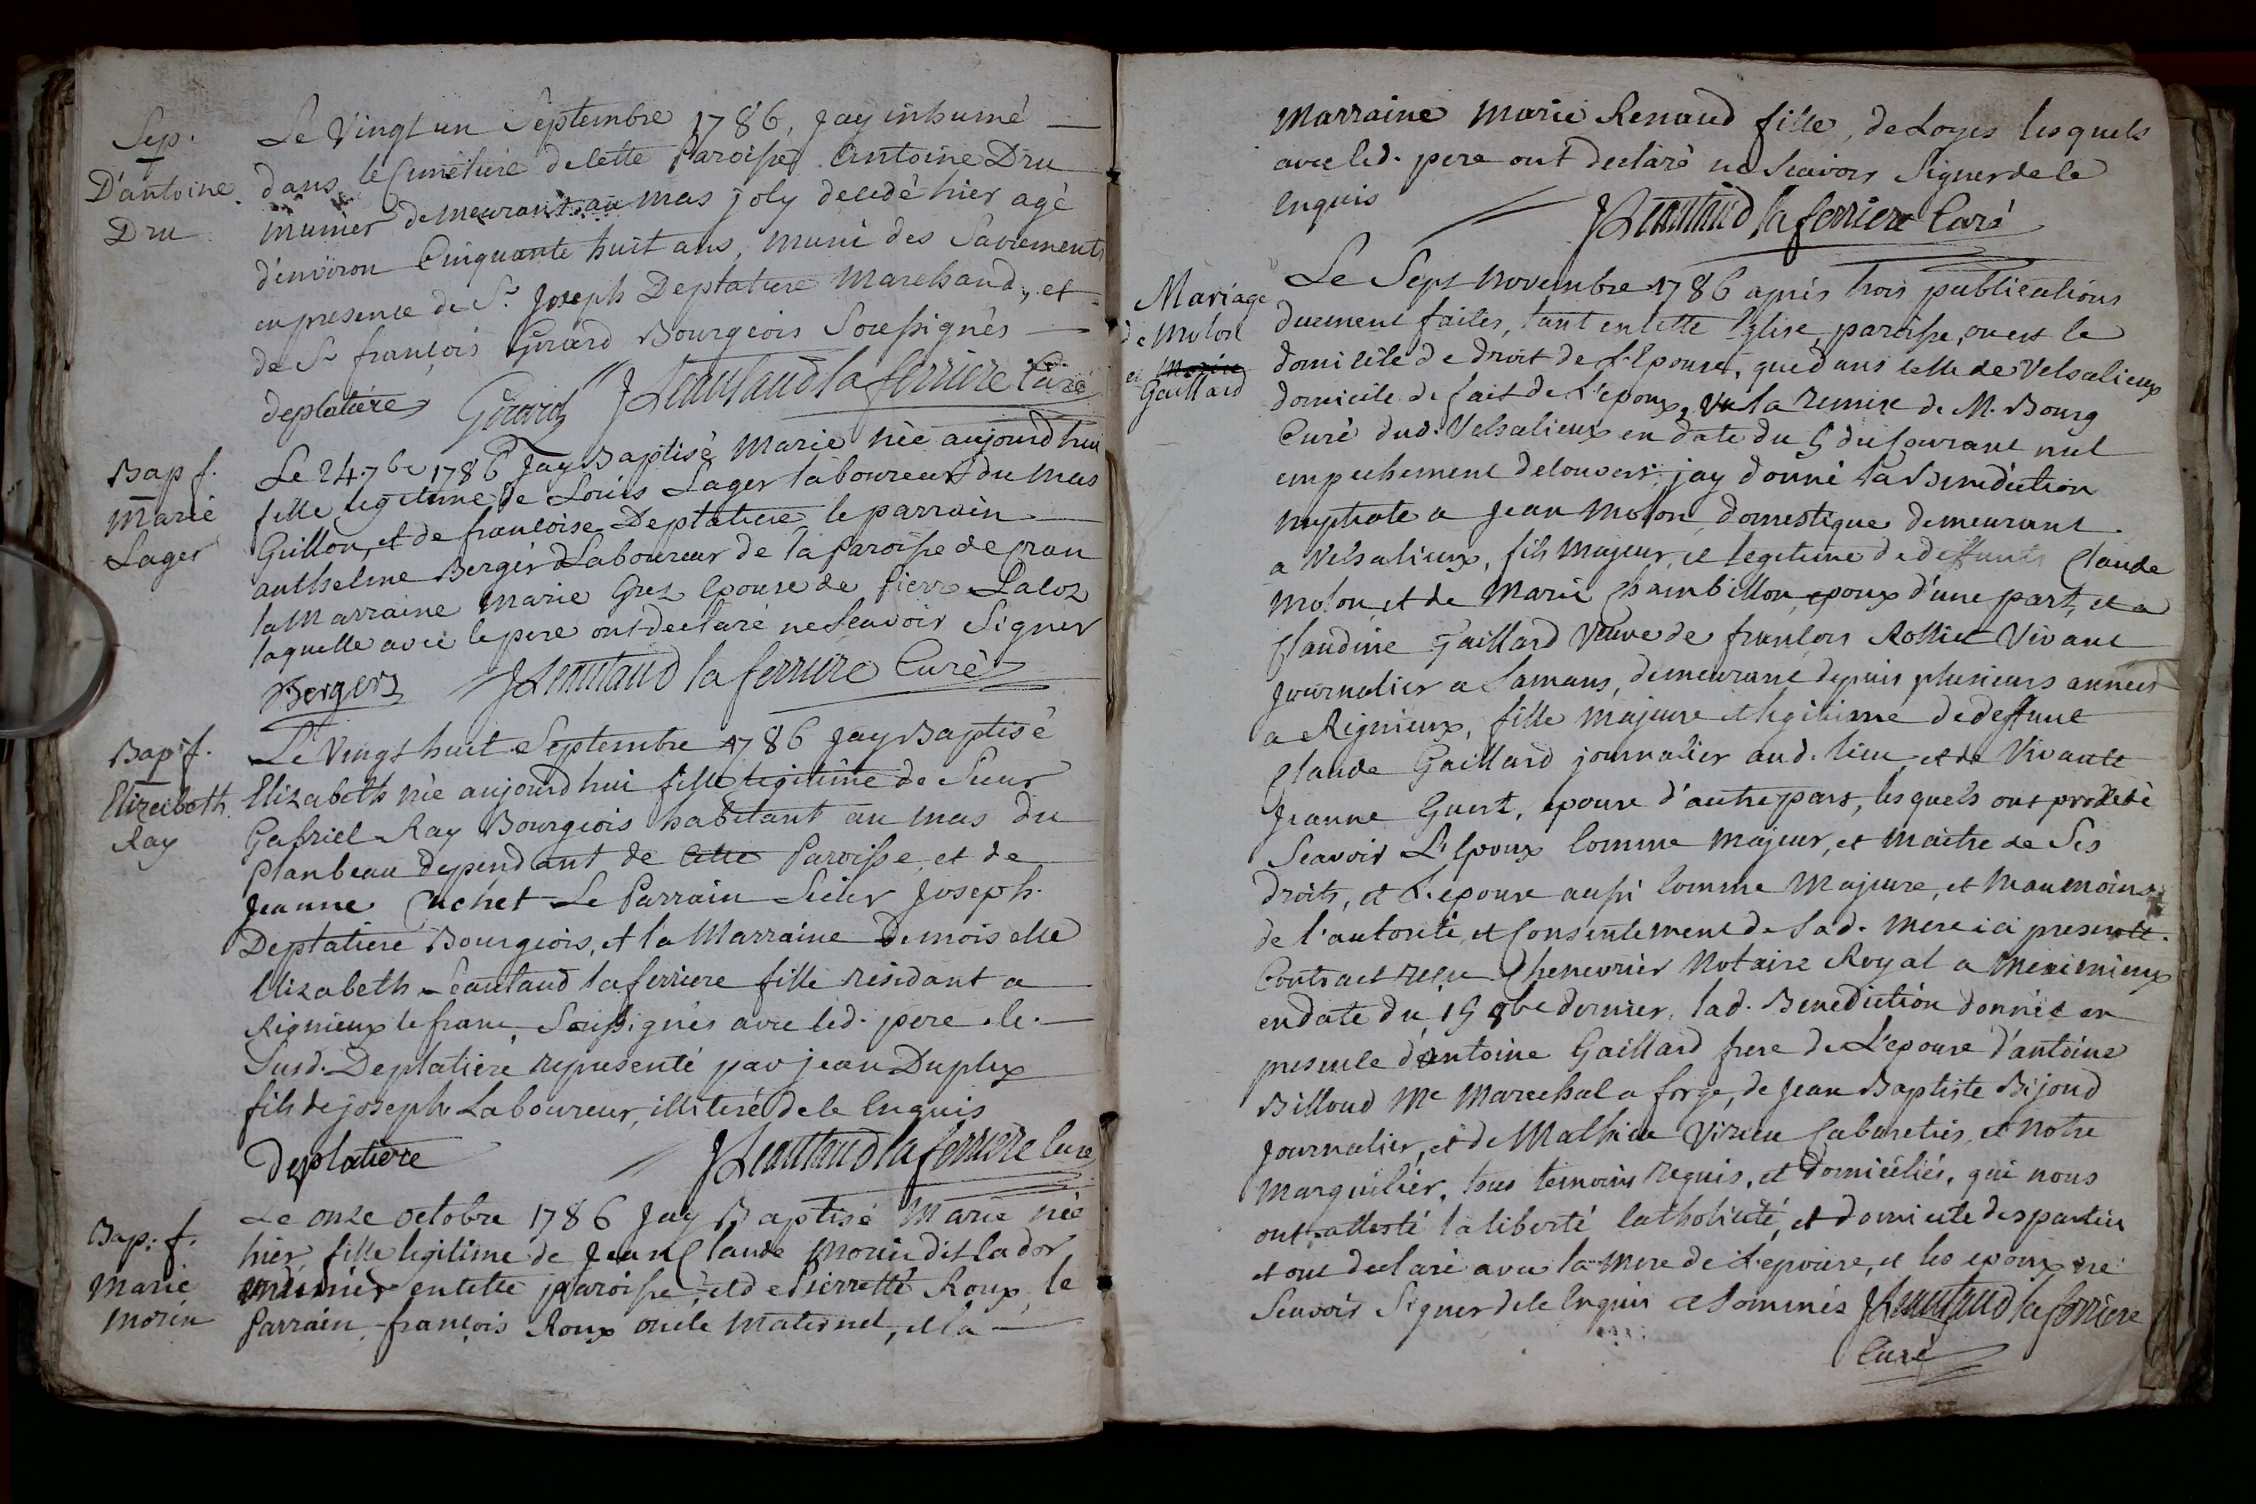 Sep.
D'antoine
Dru
Le Vingt un Septembre 1786, jay inhumé
dans le Cimétiere de cette Paroisse Antoine Dru
munier demeurant au mas joly decedé hier agé
d'environ Cinquante huit ans, muni des Sacrements
en presence de Sr. Joseph Deplatiere Marchand, et
de Sr françois Girard Bourgeois Soussignés
deplatiére Girard JLeautaud la ferriere Curé
Bap f.
Marie
Lager
Le 24. 7bre 1786 Jay Baptisé Marie née aujourd'hui
fille legitime de Louis Lager laboureur du mas
Guillon, et de francoise Deplatiere le parrain
anthelme Berger Laboureur de la Paroisse de Cran
la Marraine Marie Grez Epouse de Pierre Laloz
laquelle avec le pere ont declaré ne Scavoir Signer
Berger JLeautaud la ferriere Curé
Bap. f.
Elizabeth
Ray
Le Vingt huit Septembre 1786 Jay Baptisé
Elizabeth née aujourd'hui fille legitime de Sieur
Gabriel Ray Bourgeois habitant au mas du
Planbeau dependant de Cette Paroisse et de
Jeanne Cuchet Le Parrain Sieur Joseph
Deplatiere Bourgeois, et la Marraine Demoiselle
Elizabeth Leautaud laferriere fille residant a
Rignieux le franc, Soussignés avec led. pere le
Susd. Deplatiére representé par jean Duplex
fils de joseph Laboureur, illiteré de le Enquis
Deplatiere JLeautaud la ferriere Curé
Bap. f.
Marie
Morin
Le onze octobre 1786 Jay Baptisé Marie née
hier, fille legitime de Jean Claude Morin dit lador
munier en cette paroisse, et de Pierrette Roux, le
Parrain françois Roux oncle Maternel, et la
Marraine Marie Renaud fille, de Loyes lesquels
avec led. pere ont declaré ne Scavoir Signer de le
Enquis
JLeautaud la ferriere Curé
Mariage
de Molon
et Morin
Gaillard
Le Sept Novembre 1786 aprés trois publications
duement faites, tant en cette Eglise, paroisse, ou est le
domicile de droit de L'Epouse, que dans celle de Velsalieux
domicile de fait de L'epoux, vu la remise de M. Bourg
Curé dud. Velsalieux en date du 5 du Courant nul
empechement decouvert, jay donné la Benediction
nuptiale a Jean Molon, domestique demeurant
a Velsalieux, fils Majeur, et legitime de deffunts Claude
Molon, et de Marie Chambillon, epoux d'une part, et a
Claudine Gaillard Veuve de francois Rollet Vivant
Journalier a Samans, demeurant depuis plusieurs années
a Rignieux, fille Majeure et legitime de deffunt
Claude Gaillard journalier aud. lieu, et de Vivante
Jeanne Guert, epouse d'autre part, lesquels ont procédé
Scavoir L'Epoux Comme Majeur, et Maitre de Ses
droits, et L'epouse aussi Comme Majeure, et Neanmoins
de l'autorité, et Consentement de Sad. Mere ici presente.
Contract reçu Chenevrier Notaire Royal a Meximieux
en date du 15 8bre dernier, lad. Benediction donnée en
presence d'Antoine Gaillard frere de L'epouse d'antoine
Billoud Me Marechal a forge, de Jean Baptiste Bijoud
Journalier, et de Mathieu Virieu Cabaretier, et Notre
Marguilier, tous temoins requis, et domiciliés, qui nous
ont attesté la liberté Catholicité, et domicile des parties
et ont declaré avec la Mere de L'epouse, et les epoux ne
Scavoir Signer de le Enquis et Sommés JLeautaud la ferriere
Curé